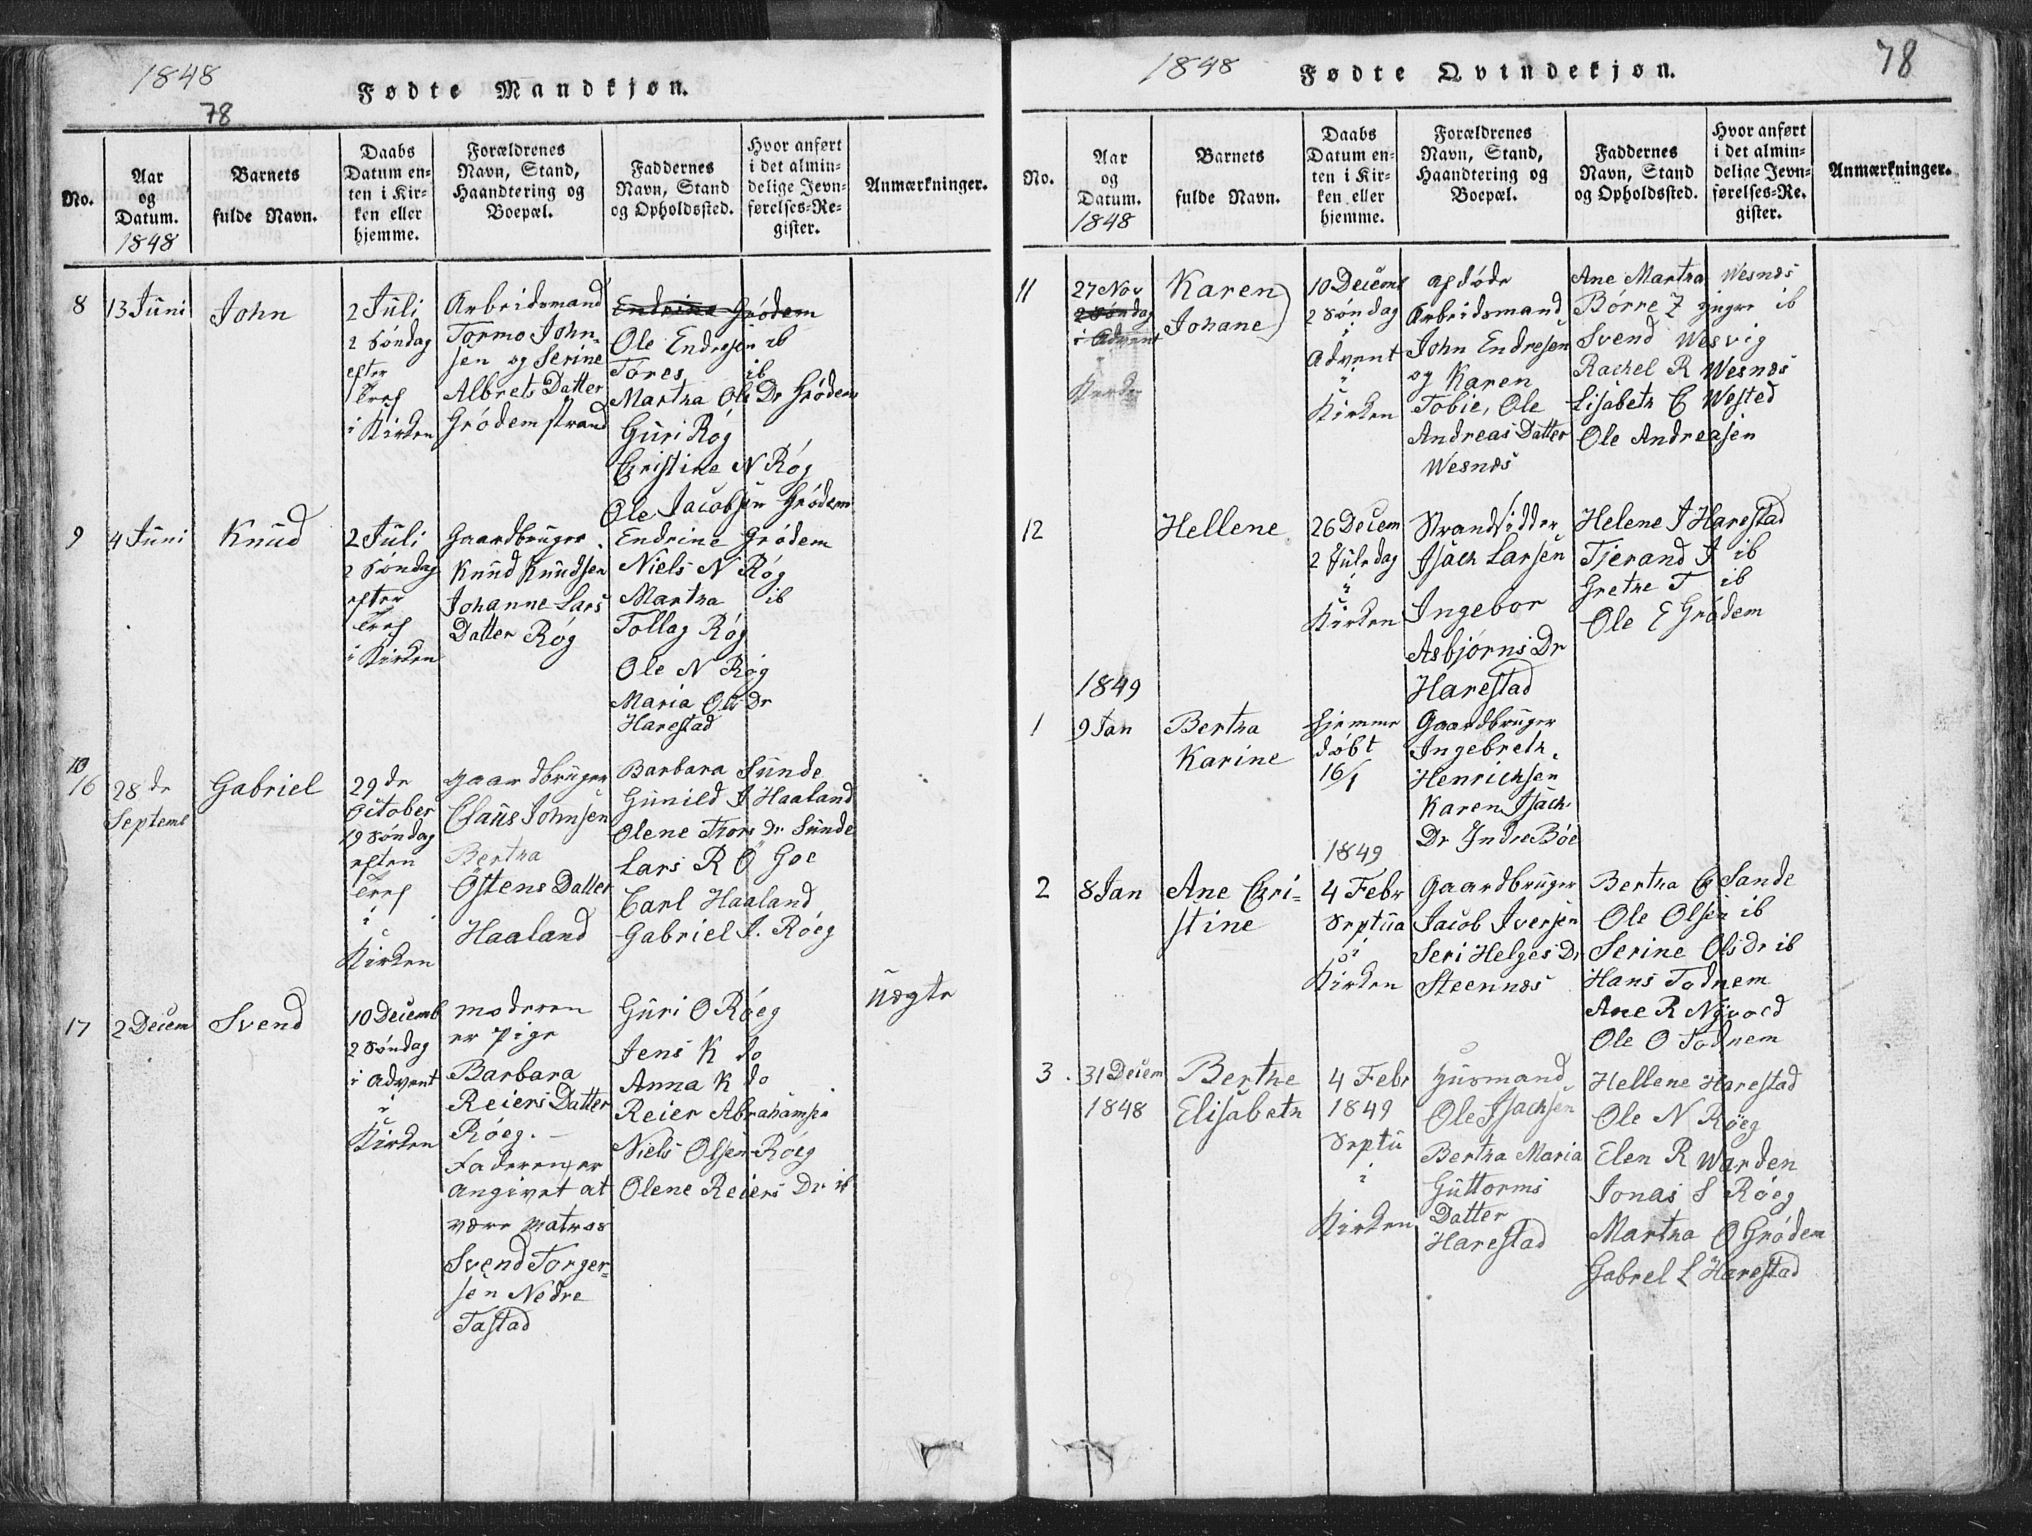 1848
78
Fødte Mandkjøn.
No.
Aar
og
Datum.
1848
Barnets
fulde Navn.
Daabs
Datum en-
ten i Kir-
ken eller
hjemme.
Forældrenes
Navn, Stand,
Haandtering og
Boepæl.
Faddernes
Navn, Stand
og Opholdssted.
Hvor anført
i det almin-
delige Jevn-
førelses-Re-
gister.
Anmærkninger.
8
13 Juni
John
2 Juli
2 Søndag
efter
i Kirken
Arbeidsmand
Tormo John-
sen og Serine
Albrets Datter
Grödemstrand
Endrine Grödem
Ole Endresen ib
Tores ib
Martha Ols Dr Grödem
Guri Rög
Cristine N Rög
Ole Jacobsen Grödem
9
4 Juni
Knud
2 Juli
2 Søndag
efter
i Kirken
Gaardbruger
Knud Knudsen
Johanne Lars
Datter Rög
Endrine Grödem
Niels N Rög
Martha ib
Tollag Rög
Ole N Rög
Maria Ols Dr
Harestad
16
28 de
Septemb
Gabriel
29 de
October
19 Søndag
efter
i
Kirken
Gaardbruger
Claus Johnsen
Bertha
Östens Datter
Haaland
Barbara Sunde
Gunild J Haaland
Olene Thors Dr Sunde
Lars R Goe
Carl Haaland
Gabriel J. Röeg
17
2 Decem
Svend
10 Decemb
2 Søndag
i Advent
i
Kirken
moderen
er Pige
Barbara
Reiers Datter
Röeg.
Faderen er
angivet at
være Matros
Svend Torger-
sen Nedre
Tastad
Guri O Röeg
Jens K do
Anna K do
Reier Abrahamsen
Niels Olsen Röeg
Olene Reiers Dr ib
Uægte
1848
Fødte Qvindekjøn.
78
No.
Aar
og
Datum.
1848
Barnets
fulde Navn.
Daabs
Datum en-
ten i Kir-
ken eller
hjemme.
Forældrenes
Navn, Stand,
Haandtering og
Boepæl.
Faddernes
Navn, Stand
og Opholdssted.
Hvor anført
i det almin-
delige Jevn-
førelses-Re-
gister.
Anmærkninger.
11
27 Nov
2 Søndag
i Advent
Karen
Johane
10 Decemb
2 Søndag
i
Advent
i
Kirken
afdøde
Arbeidsmand
John Endresen
og Karen
Tobie, Ole
Andreas Datter
Wesnæs
Ane Martha Wesnæs
Börre Z ib
Svend Wesvig
Rachel R Wesnæs
Lisabeth C Wested
Ole Andreasen
12
Hellene
26 Decem
2 Juledag
i
Kirken
Strandsidder
Isach Larsen
Ingebor
Asbjörns Dr
Harestad
Helene J Harestad
Tjerand J ib
Grethe T ib
Ole E Grödem
1849
1
9 Jan
Bertha
Karine
hjemme
døbt
16/1
Gaardbruger
Ingebreth
Henrichsen
Karen Isach
Dr Indre Böe
1849
2
8 Jan
Ane Cri-
stine
4 Febr
Septua
i
Kirken
Gaardbruger
Jacob Iversen
Seri Helges Dr
Steennæs
Bertha C Sande
Ole Olsen ib
Serine Olsdr ib
Hans Todnem
Ane R Nyvold
Ole O Todnem
3
31 Decem
1848
Berthe
Elisabeth
4 Febr
1849
Septu
i
Kirken
Husmand
Ole Isachsen
Bertha Maria
Guttorms
Datter
Harestad
Hellene Harestad
Ole N Röeg
Elen R Warden
Jonas S Röeg
Martha O Grödem
Gabrel L Harestad